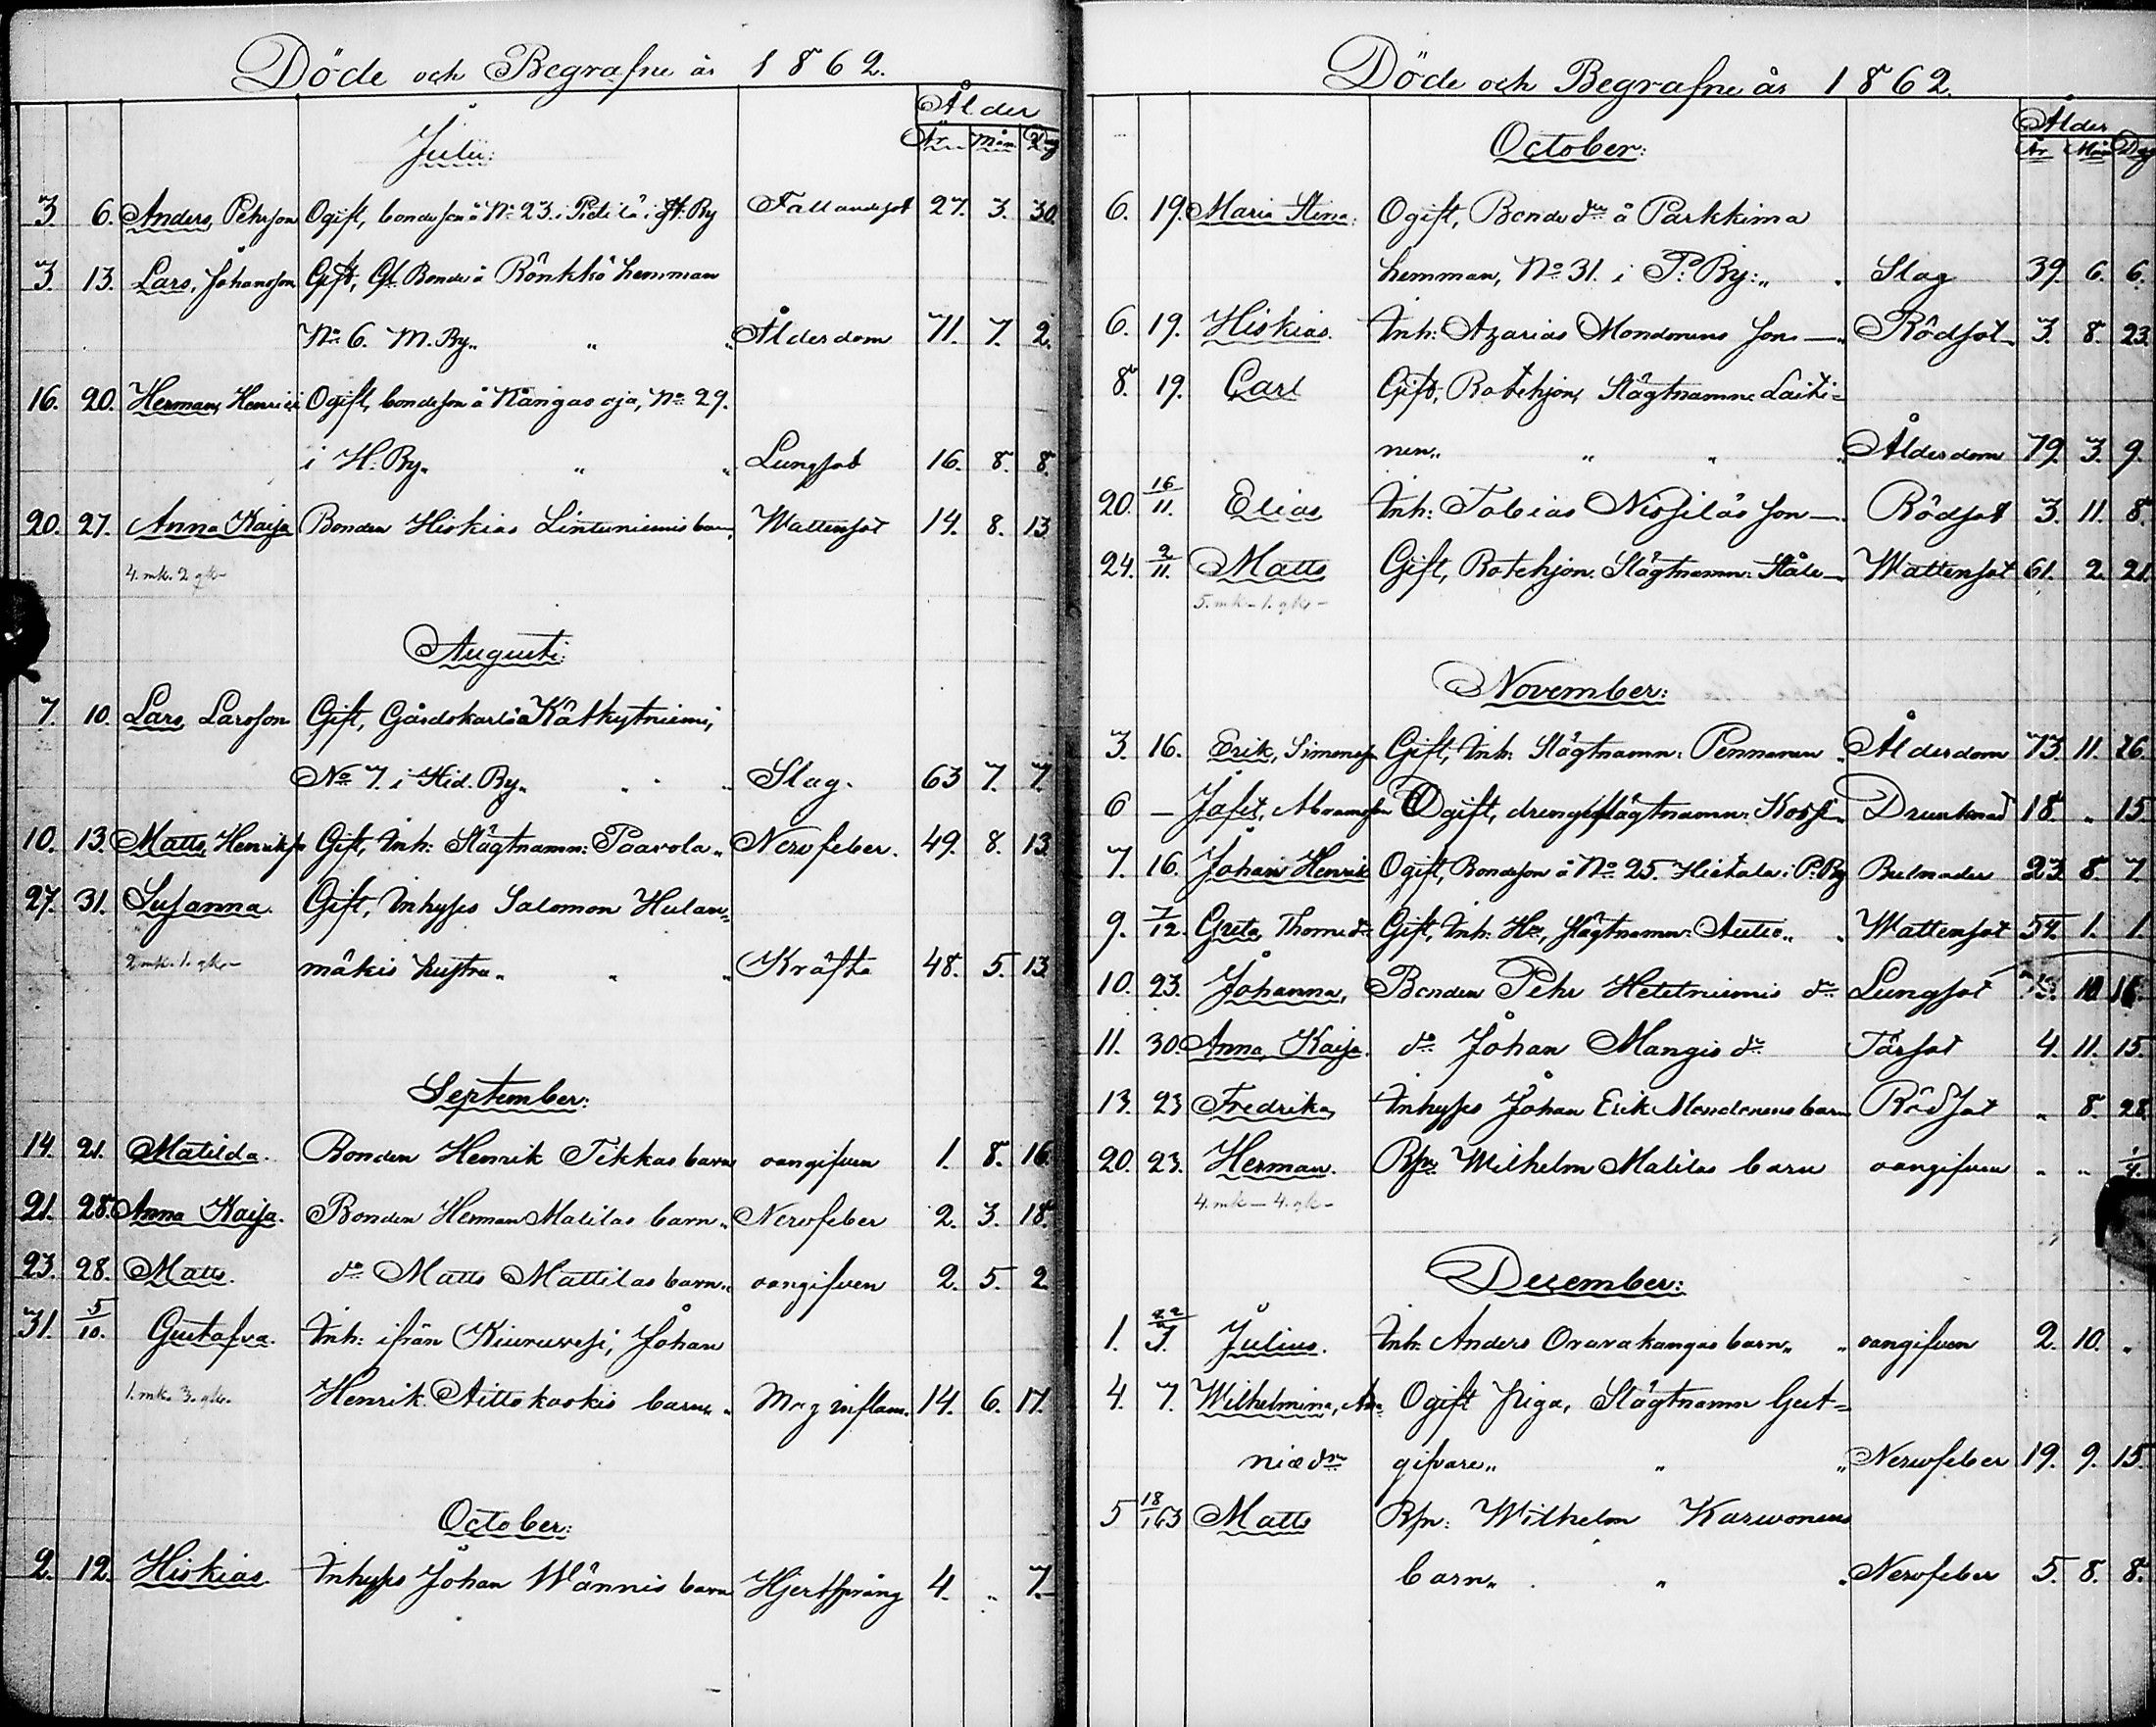 Döde och Begrafne år 1862.
Ålder
År Mån Dag
Julii:
3 6. Anders, Pehrson Ogift, bondeson å No 23. i Pidilä i H. By Fallandesot 27. 3. 30.
3. 13. Lars, Johansson Gift, Gl. Bonde å Rönkkö hemman
No 6. M. By „ „ „ Ålderdom 71. 7. 2.
16. 20. Herman, Henrics Ogift, bondeson å Kangas oja, No 29.
i H. By. „ „ Lungsot 16. 8. 8.
20. 27. Anna Kaisa Bonden Hiskias Lintuniemis barn, Wattensot 14. 8. 13
4. mk. 2 qk-
Augusti:
7. 10. Lars Larsson Gift, Gårdskarl å Kätkytniemi,
No 7. i Hid. By. „ „ Slag. 63 7. 7.
10. 13. Matts, Henrikss Gift, Inh: Slägtnamn: Paavola „ Nervfeber. 49. 8. 13
27. 31. Susanna. Gift, Inhyses Salomon Hulan=
2 mk. 1. qk- mäkis hustru „ „ „ Kräfta 48. 5. 13
September:
14. 21. Matilda. Bonden Henrik Tikkas barn oangifven 1. 8. 16
21. 28. Anna Kaisa. Bonden Herman Matilas barn „ Nervfeber 2. 3. 18.
23. 28. Matts. do Matts Mattilas barn „ oangifven 2. 5. 2
31. 5/10. Gustafva. Inh: ifrån Kiuruvesi, Johan
1. mk. 3. qk. Henrik Aittokoskis barn „ „ Mag inflam. 14. 6. 17.
October:
2. 12. Hiskias. Inhyses Johan Wännis barn Hjertsprång 4. „ 7.
Döde och Begrafne år 1862.
Ålder
År Mån Dag
October:
6. 19. Maria Stina: Ogift, Bonde dr å Parkkima
hemman, No 31. i P. By: „ „ Slag 39. 6. 6.
6. 19. Hiskias. Inh: Azarias Mondonens son —. Rödsot 3. 8. 23.
8. 19. Carl Gift, Rotehjon, Slägtnamn: Laiti=
nen „ „ „ „ Ålderdom 79. 3. 9.
20. 16/11. Elias Inh: Tobias Nissiläs son —. Rödsot 3. 11. 8.
24. 2/11. Matts Gift, Rotehjon. Slägtnamn: Ståle — Wattensot 61. 2. 21.
5. mk - 1. qk -
November:
3. 16. Erik, Simonss Gift, Inh: Slägtnamn: Pennanen „ Ålderdom 73. 11. 26.
6 — Jafet, Abramson Ogift, dreng Slägtnamn: Koski „ Drunknad 18. „ 15.
7. 16. Johan Henrik Ogift, Bondeson å No 25. Hietala i P. By Bulnader 23 8. 7.
9. 7/12. Greta Thome dr Gift, Inh: Hu, Slägtnamn: Autio „ „ Wattensot 54. 1. 1.
10. 23. Johanna, Bonden Pehr Hetetniemis dr Lungsot 10. 16
11. 30. Anna Kaisa. do Johan Mangis dr Tärsot 4. 11. 15.
13. 23 Fredrika, Inhyses Johan Erik Mondonens barn Rödsot „ 8. 28
20. 23. Herman. Bn: Wilhelm Malilas barn oangifven „ „ 1/4.
4. mk — 4. qk -
December:
1. Julius. Inh: Anders Oravakangas barn „ „ oangifven 2. 10. „
4. 7. Wilhelmina, Ana= Ogift piga, Slägtnamn Gest=
niædr gifvare „ „ „ Nervfeber 19. 9. 15.
5 18/1 63 Matts Bn: Wilhelm Karvonens
barn „ „ „ Nervfeber 5. 8. 8.